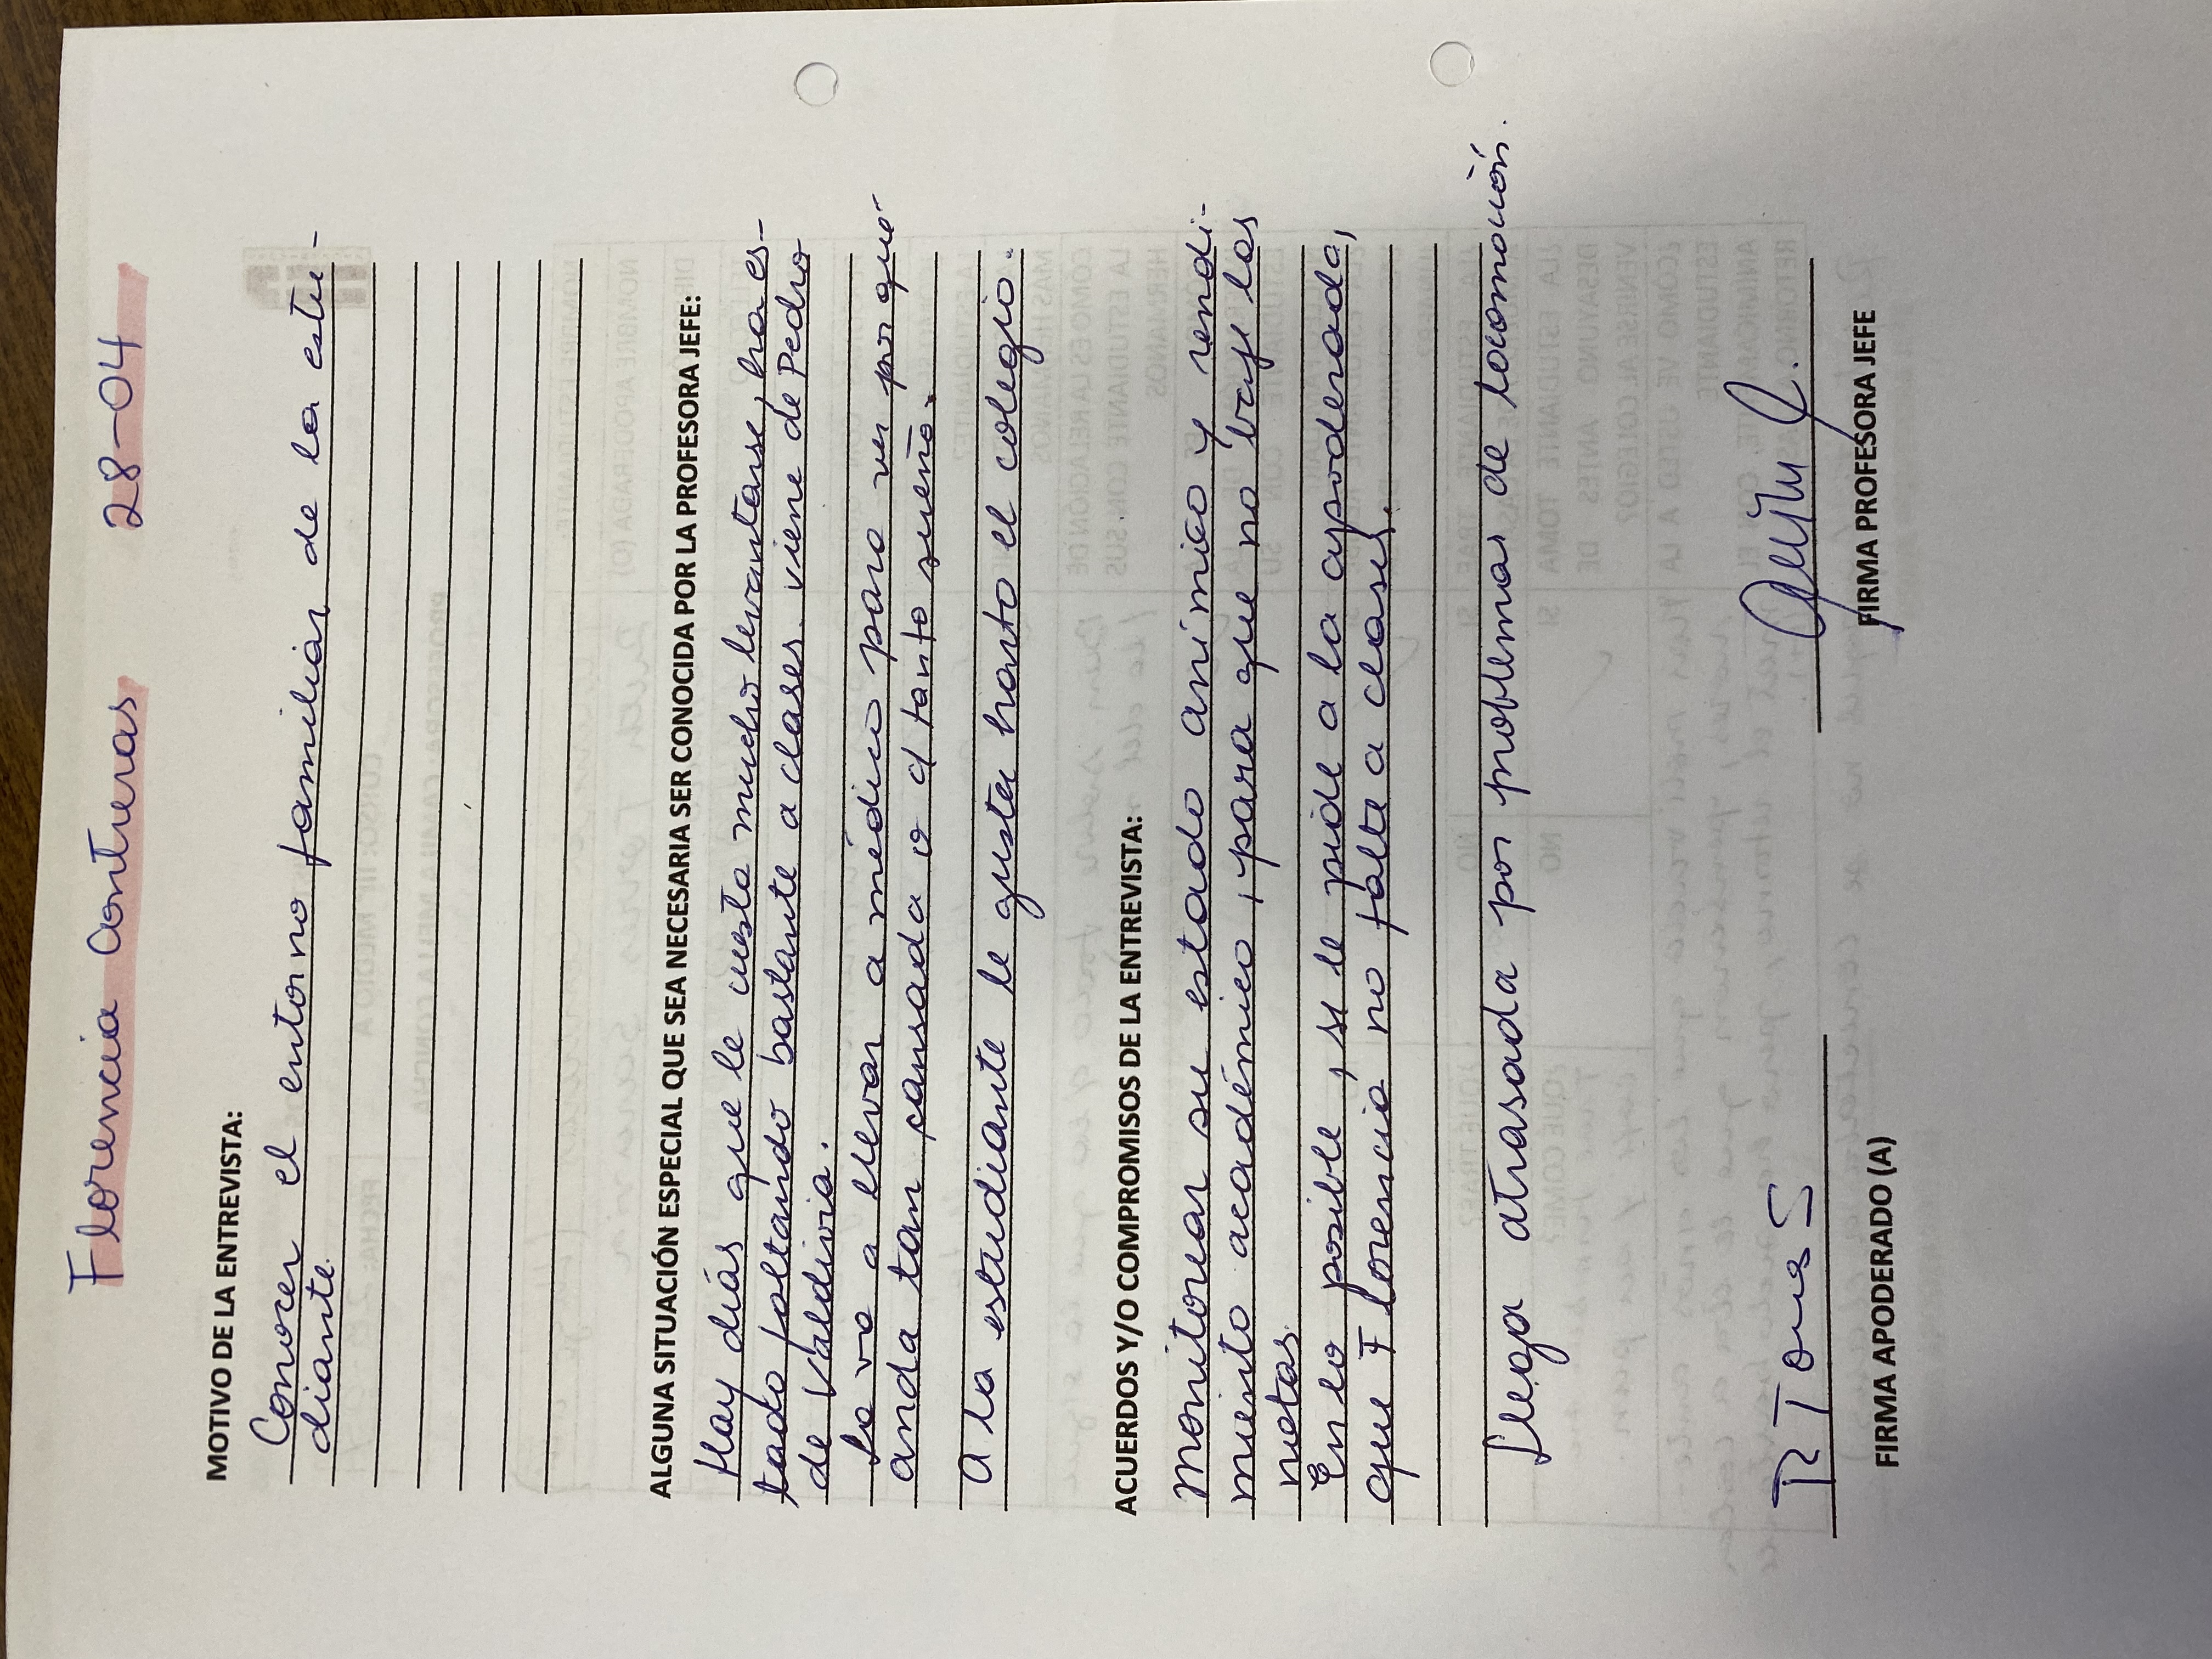 Florencia Contreras 28-04
MOTIVO DE LA ENTREVISTA:
Conocer el entorno familiar de la estu-
diante.
ALGUNA SITUACIÓN ESPECIAL QUE SEA NECESARIA SER CONOCIDA POR LA PROFESORA JEFE:
Hay días que le cuesta mucho levantarse, ha es-
tado faltando bastante a clases. viene de Pedro
de Valdivia.
La va a llevar a médico para ver por qué
anda tan cansada o d tanto sueño.
A la estudiante le gusta harto el colegio.
ACUERDOS Y/O COMPROMISOS DE LA ENTREVISTA:
Monitorear su estado anímico y rendi-
miento académico, para que no baje las
notas.
En lo posible, se le pide a la apoderada,
que Florencia no falte a clases.
Llega atrasada por problemas de locomoción.
R Tones S
FIRMA APODERADO (A)
FIRMA PROFESORA JEFE